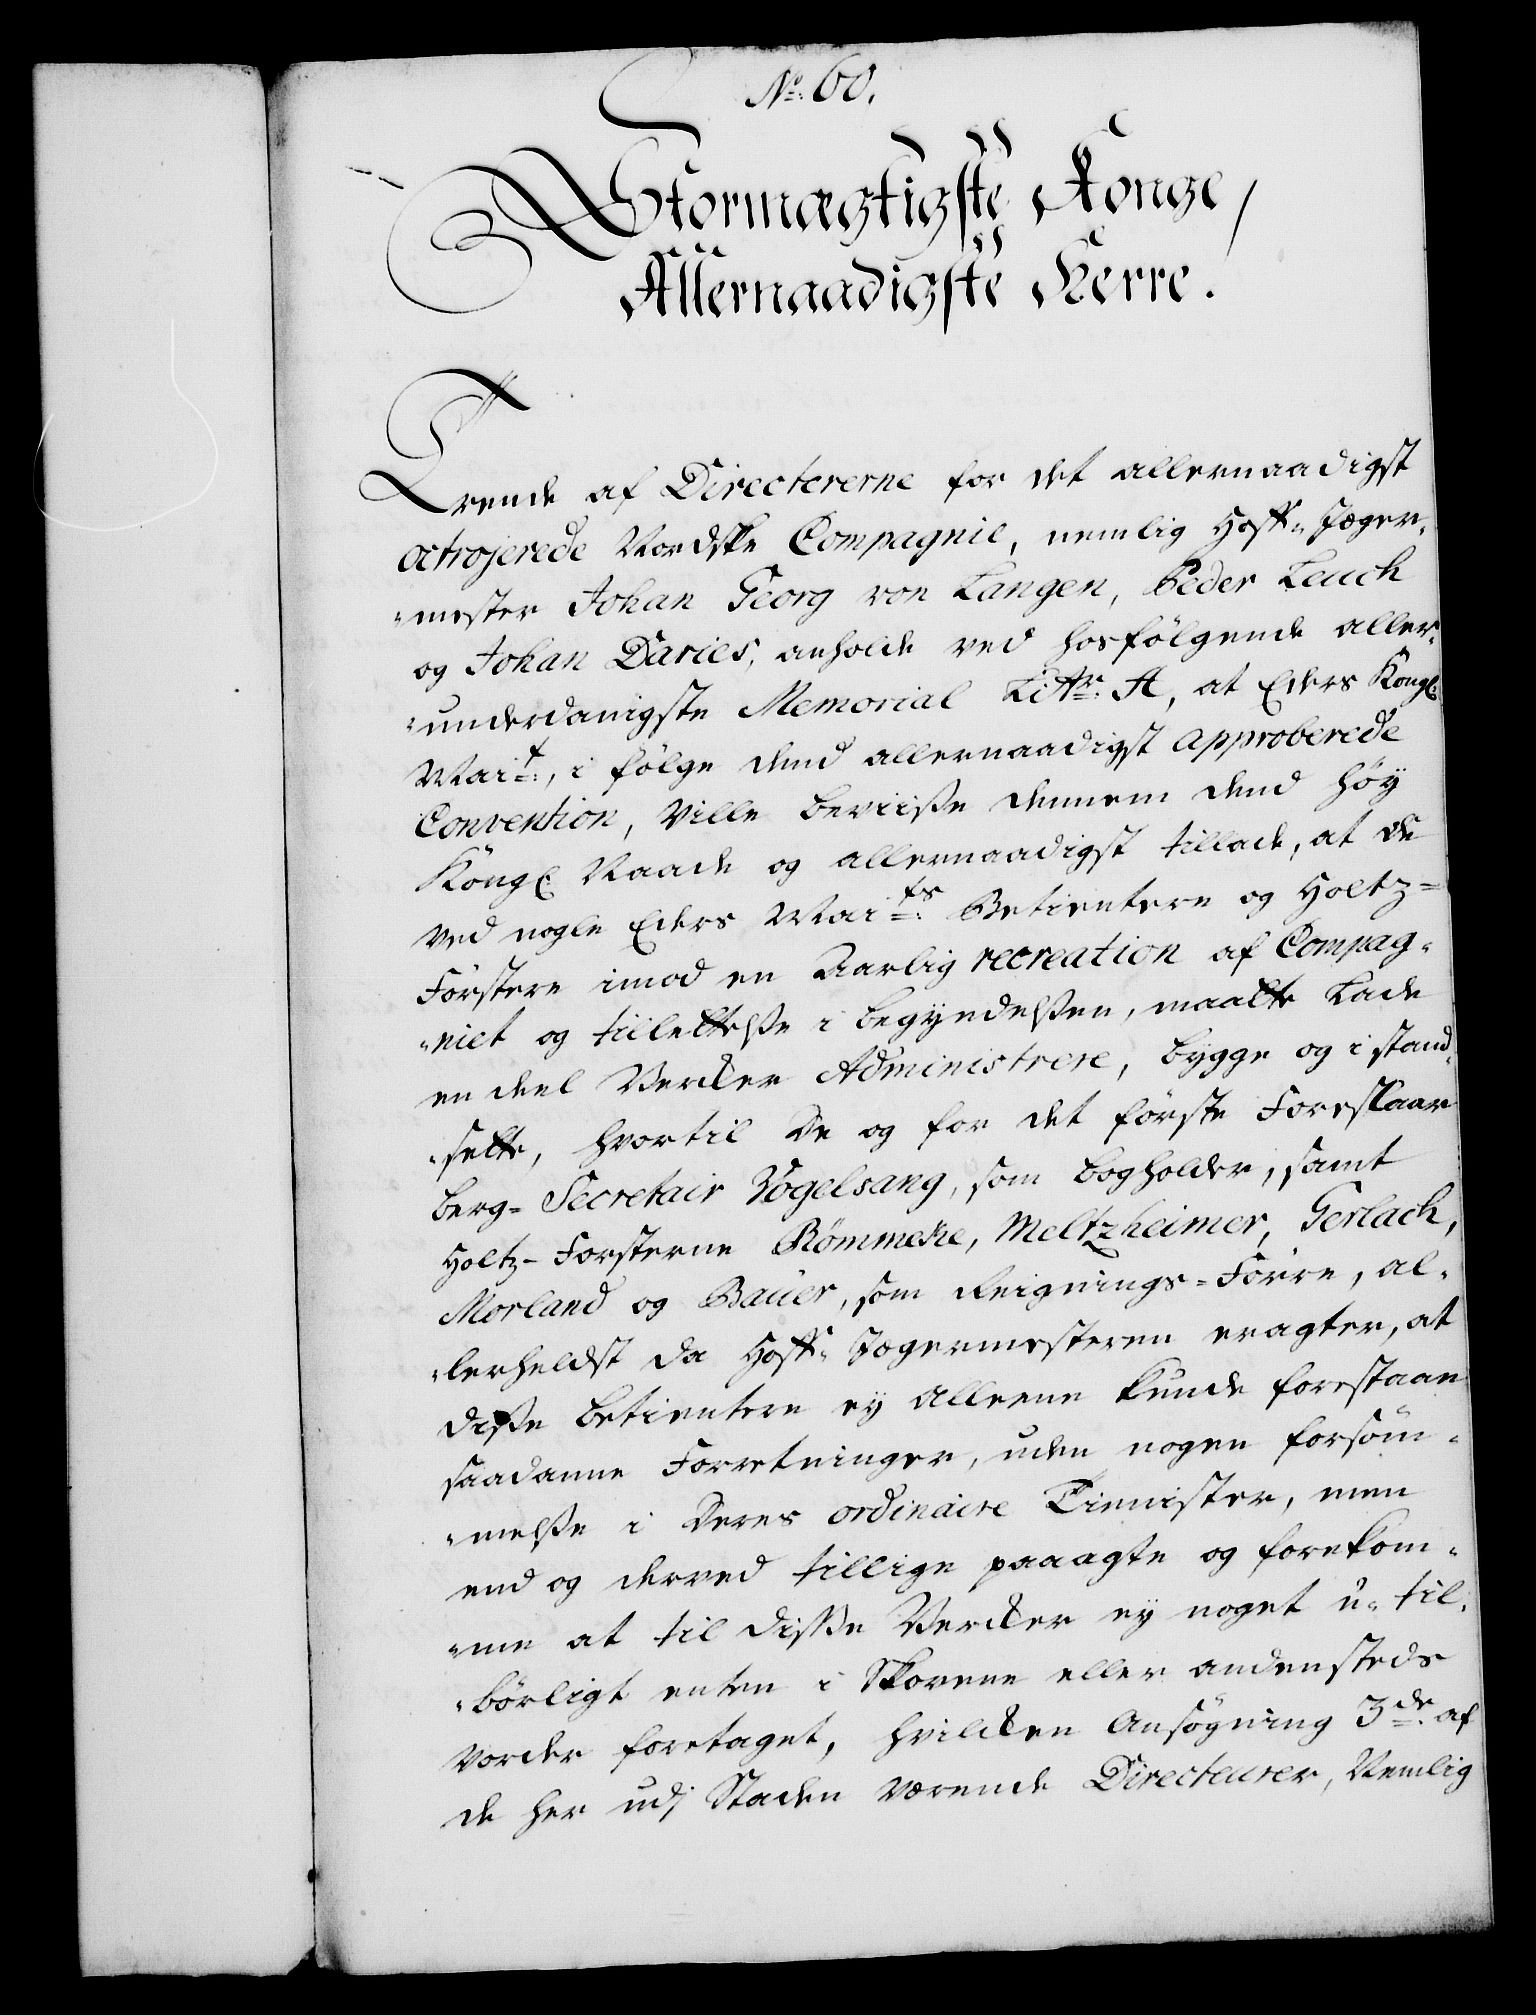 No: 60.
Stormægtigste Konge,
Allernaadigste Herre.
Trende af Directererne for det allernaadigst
octrojerede Nordske Compagnie, nemlig Hoff- Jæger-
-mester Johan Georg von Langen, Peder Leuch
og Johan Daries, anholde ved hosfölgende aller-
-underdanigste Memorial Littr: A, at Eders Kongl:
Mait:, i fölge dend allernaadigst approberede
Convention, Ville beviisse dennem dend höy
Köngl: Naade og allernaadigst tillade, at de
ved nogle Eders Maits: Betientere og Holtz-
Förstere imod en Aarlig recreation af Compag-
-niet og tillettelsse i begyndelssen, maatte Lade
en deel Vercker Administrere, bygge og i stand-
-sette, hvortil De og for det förste Foreslaar
berg- Secretair Vogelsang, som bogholder, samt
Holtz- Forsterne Römmeke, Meltzheimer, Gerlach,
Morland og Baüer, som Reignings- Förre, al-
-lerheldst da Hoff- Jægermesteren eragter, at
disse betientere ey alleene kunde forestaae
saadanne Forretninger, uden nogen forsöm-
-melsse i Deres ordinaire Tienister, men
end og derved tillige paaagte og forekom-
-me at til disse Vercker ey noget u- til-
-börligt enten i Skovene eller andensteds
vorder foretaget, hvilcken Ansögning 3de: af
de her udj Staden værende Directeurer, Nemlig